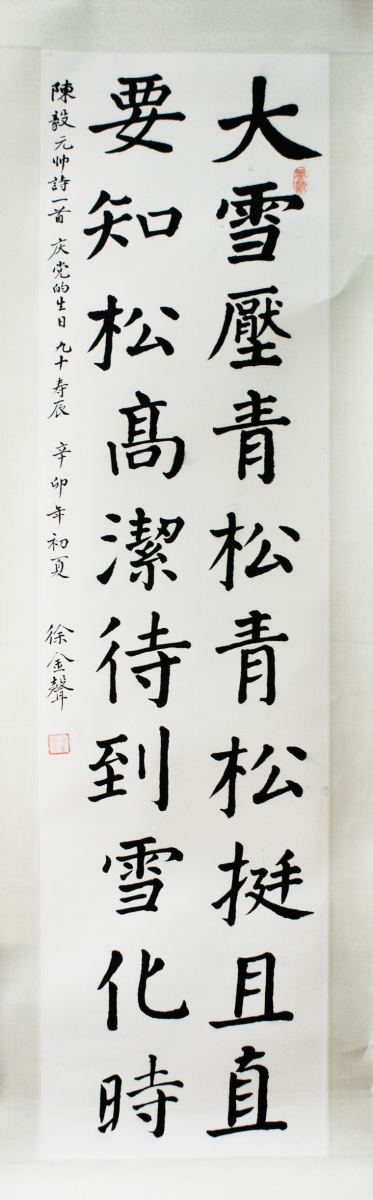 大雪壓青松青松挺且直
要知松髙潔待到雪化時
陳毅元帅詩一首 庆党的生日 九十寿辰 辛卯年初夏 徐金聲